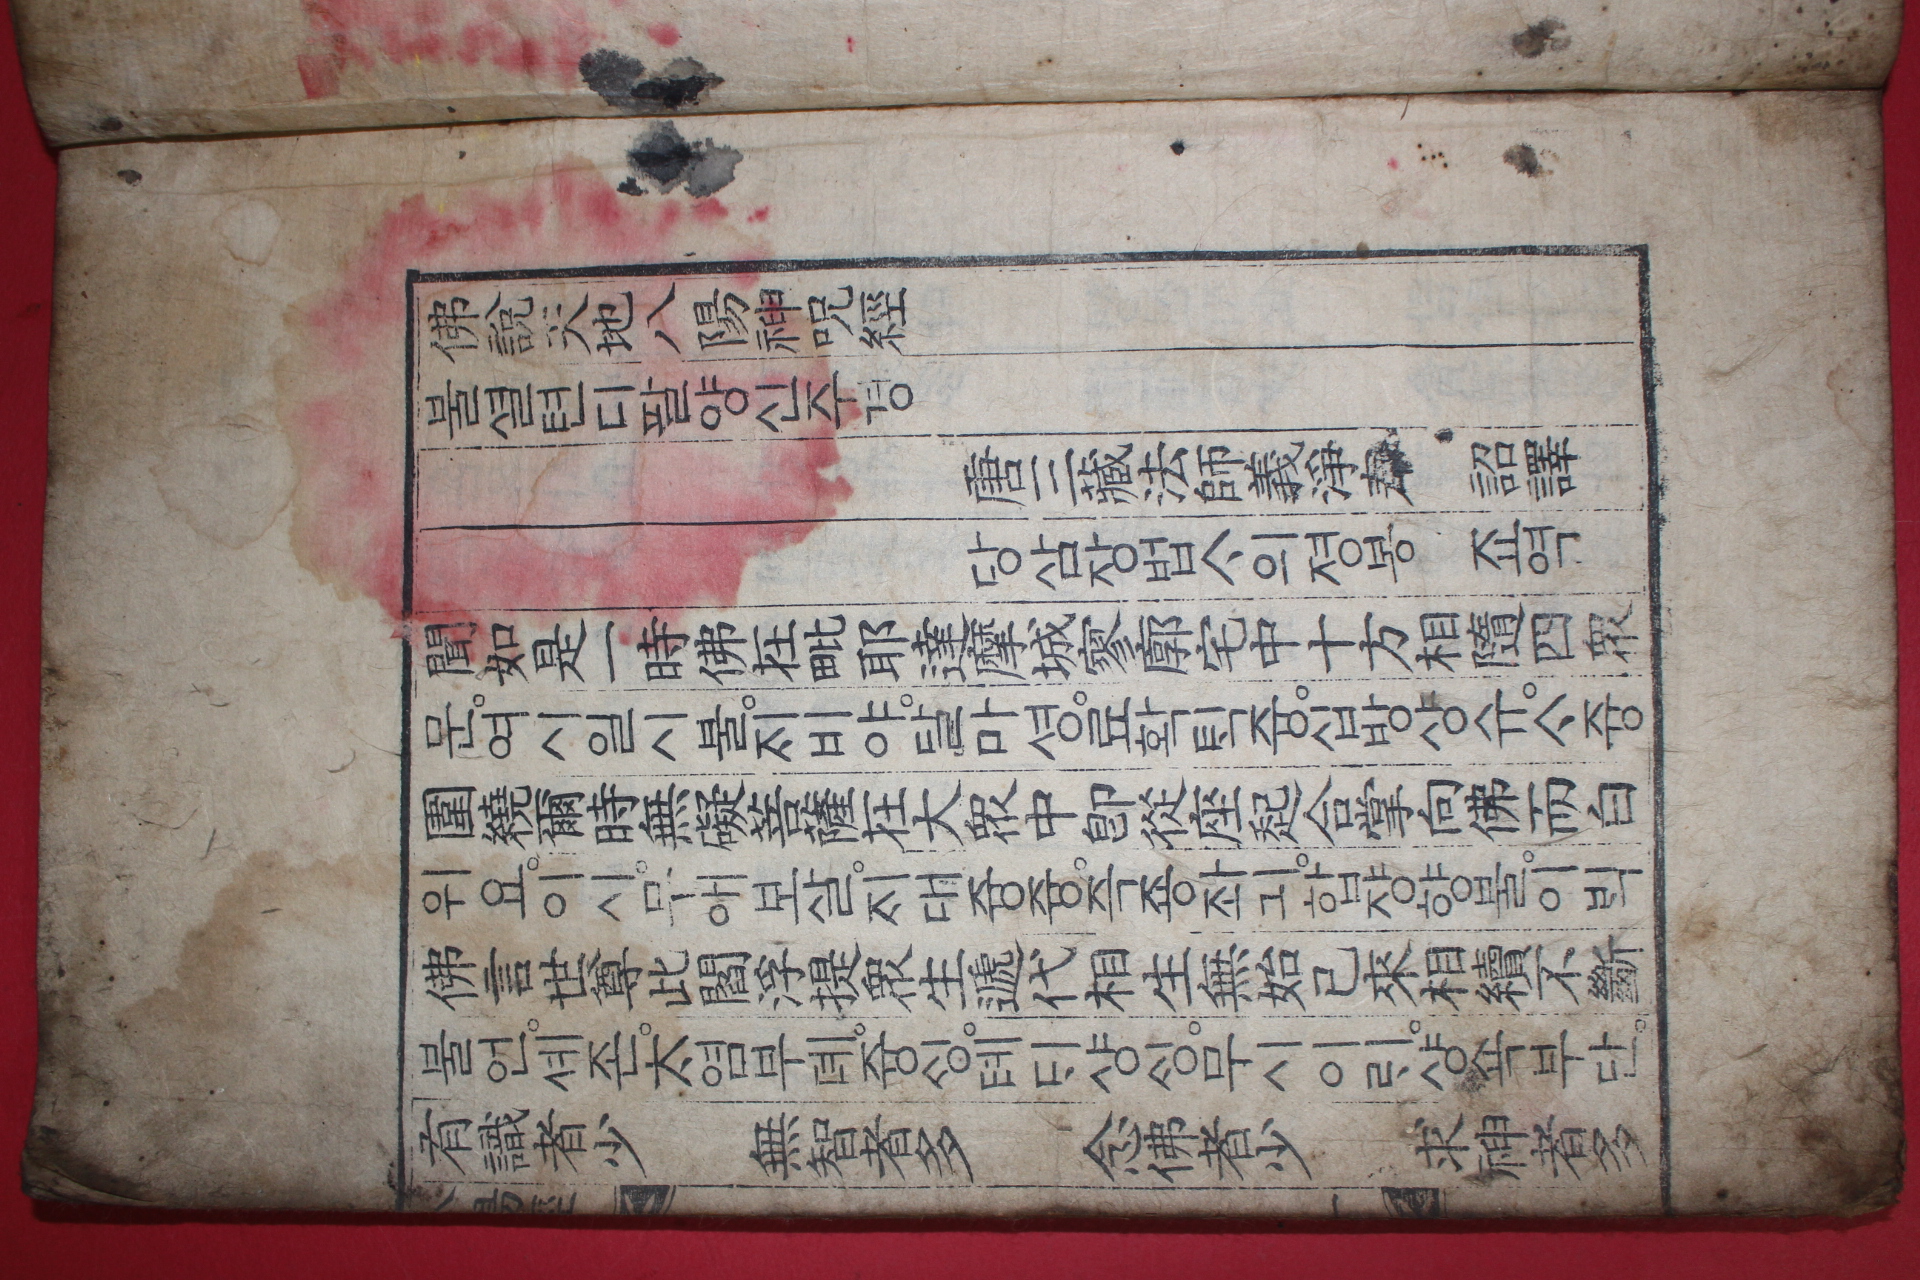 佛說天地八陽神呪經
불셜텬디팔양신주경
唐三藏法師義淨奉 詔譯
당삼장법ᄉ의졍봉 죠역
聞如是一時佛在毗耶達摩城寥廓宅中十方相隨四衆
문。여시일시불。ᄌᆡ비야。달마셩。료확ᄐᆡᆨ즁。십방샹슈。ᄉ즁
圍繞爾時無礙菩薩在大衆中卽從座起合掌向佛而白
위요。이시。무애보살。ᄌᆡ대즁즁。즉죵좌긔。합쟝향불。이ᄇᆡᆨ
佛言世尊此閻浮提衆生遞代相生無始已來相續不斷
불언。셰존。ᄎᆞ염부뎨。즁ᄉᆡᆼ。톄ᄃᆡ샹ᄉᆡᆼ。무시이ᄅᆡ。샹쇽부단。
有識者少 無智者多 念佛者少 求神者多
陽經 一